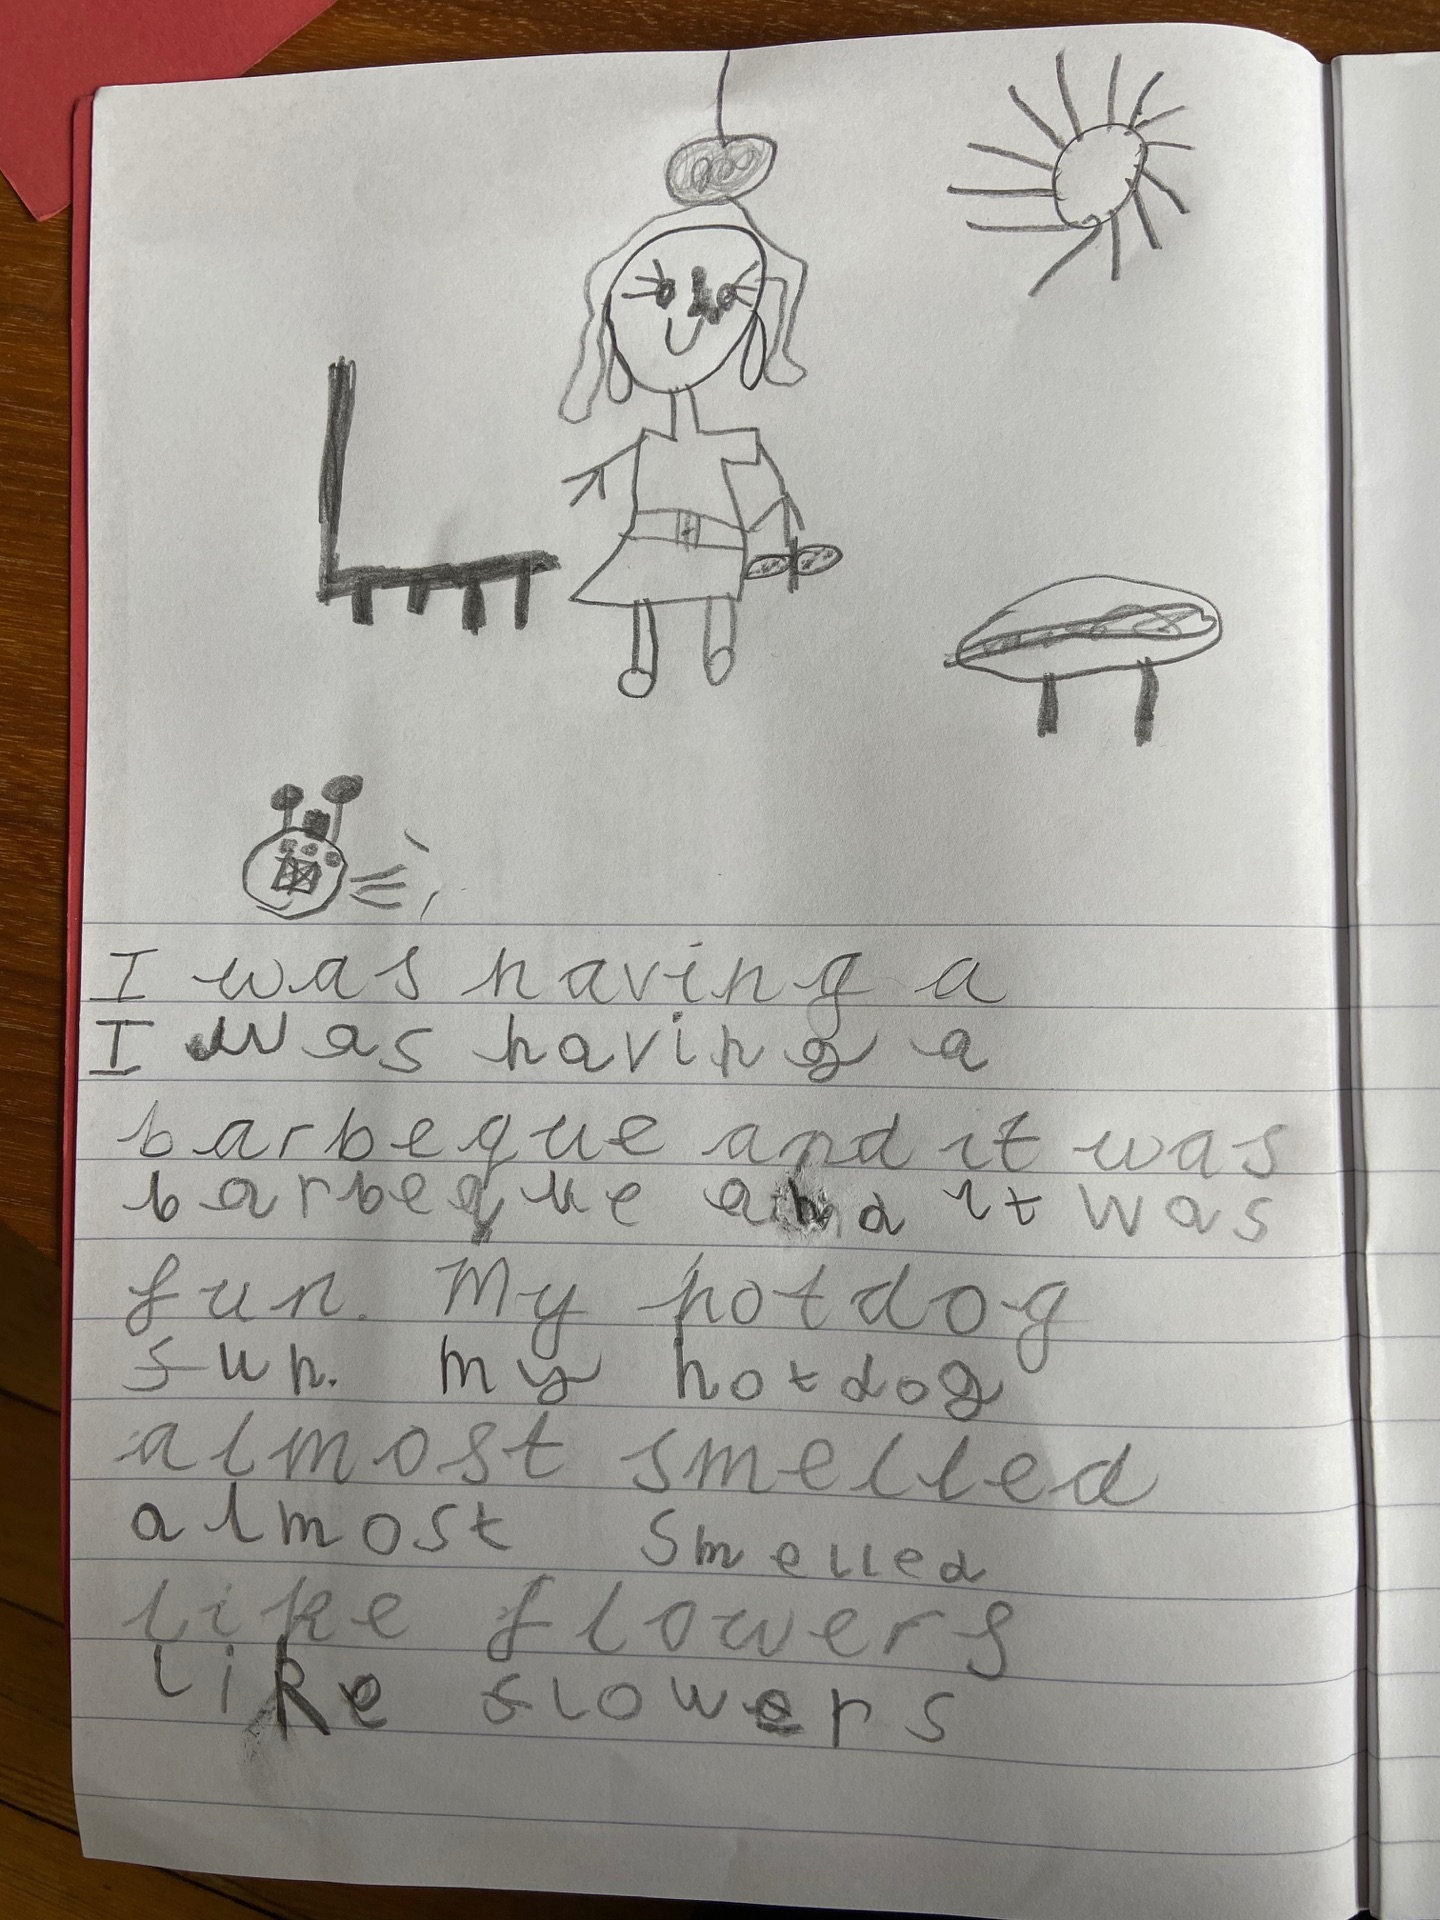 I was having a
I was having a
barbeque and it was
barbeque and it was
fun. My hotdog
fun. my hotdog
almost smelled
almost smelled
like flowers
like flowers